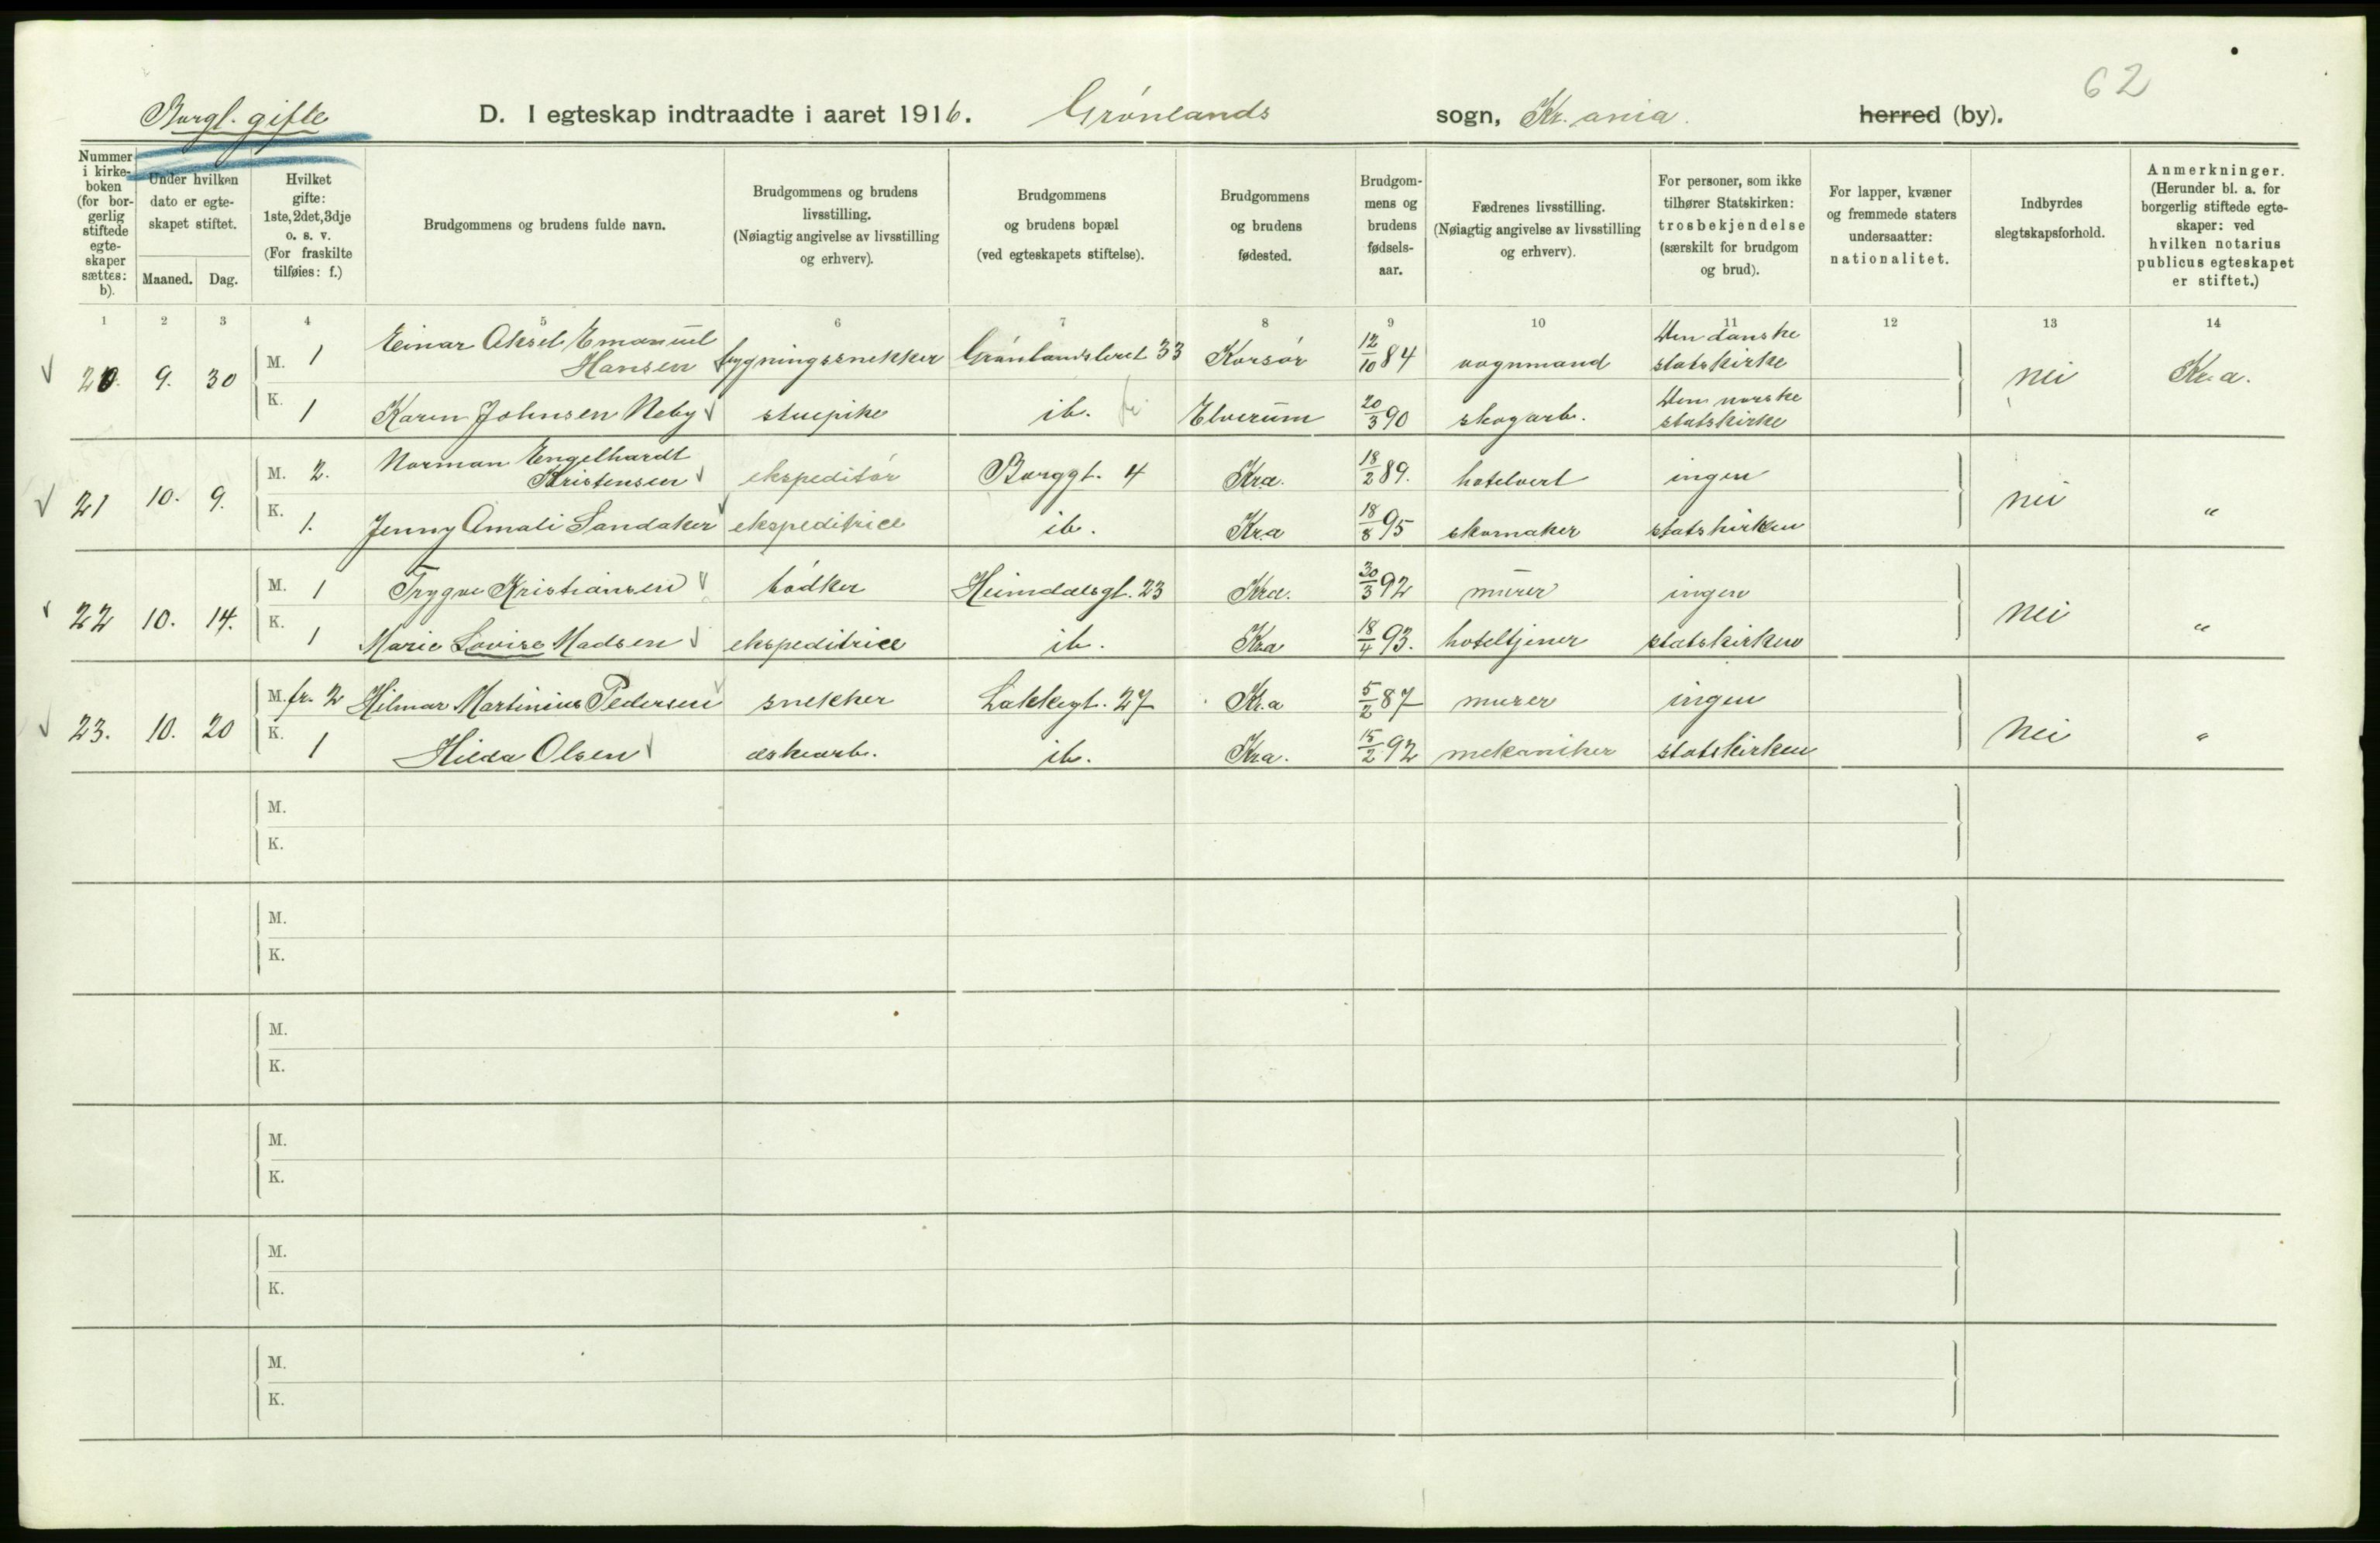 62
Borgl. gifte D. I egteskap indtraadte i aaret 1916. Grønlands sogn, Kr.ania. herred (by).
Nummer i kirkeboken (for borgerlig stiftede egteskaper sættes: b).
Under hvilken dato er egteskapet stiftet.
Maaned. Dag.
Hvilket gifte: 1ste, 2det, 3dje o. s. v. (For fraskilte tilføies: f.)
Brudgommens og brudens fulde navn.
Brudgommens og brudens livsstilling. (Nøiagtig angivelse av livsstilling og erhverv).
Brudgommens og brudens bopæl (ved egteskapets stiftelse).
Brudgommens og brudens fødested.
Brudgommens og brudens fødselsaar.
Fædrenes livsstilling. (Nøiagtig angivelse av livsstilling og erhverv).
For personer, som ikke tilhører Statskirken: trosbekjendelse (særskilt for brudgom og brud).
For lapper, kvæner og fremmede staters undersaatter: nationalitet.
Indbyrdes slegtskapsforhold.
Anmerkninger. (Herunder bl. a. for borgerlig stiftede egteskaper: ved hvilken notarius publicus egteskapet er stiftet.)
1 2 3 4 5 6 7 8 9 10 11 12 13 14
20. 9. 30 M. 1 Einar Aksel Emanuel Hansen bygningssnekker Grønlandsleret 33 Korsør 12/10 84 vognmand Den danske statskirke nei Kr.a.
K. 1 Karen Johnsen Neby stuepike ib. Elverum 20/3 90 skogarb. Den norske statskirke
21 10. 9. M. 2. Norman Engelhardt Kristensen ekspeditør Borggt. 4 Kra. 18/2 89. hotelvert ingen nei "
K. 1. Jenny Amali Sandaker ekspeditrice ib. Kra 18/8 95 skomaker statskirken
22 10. 14. M. 1 Trygve Kristiansen bødker Heimdalsgt. 23 Kra. 30/3 92 murer ingen nei "
K. 1 Marie Lovise Madsen ekspeditrice ib. Kra 18/4 93. hoteltjener statskirken
23. 10. 20 M. fr. 2 Hilmar Martinius Pedersen snekker Lakkegt. 27 Kr.a 5/2 87 murer ingen nei "
K. 1 Hilda Olsen æskearb. ib. Kra. 15/2 92 mekaniker statskirken
M.
K.
M.
K.
M.
K.
M.
K.
M.
K.
M.
K.